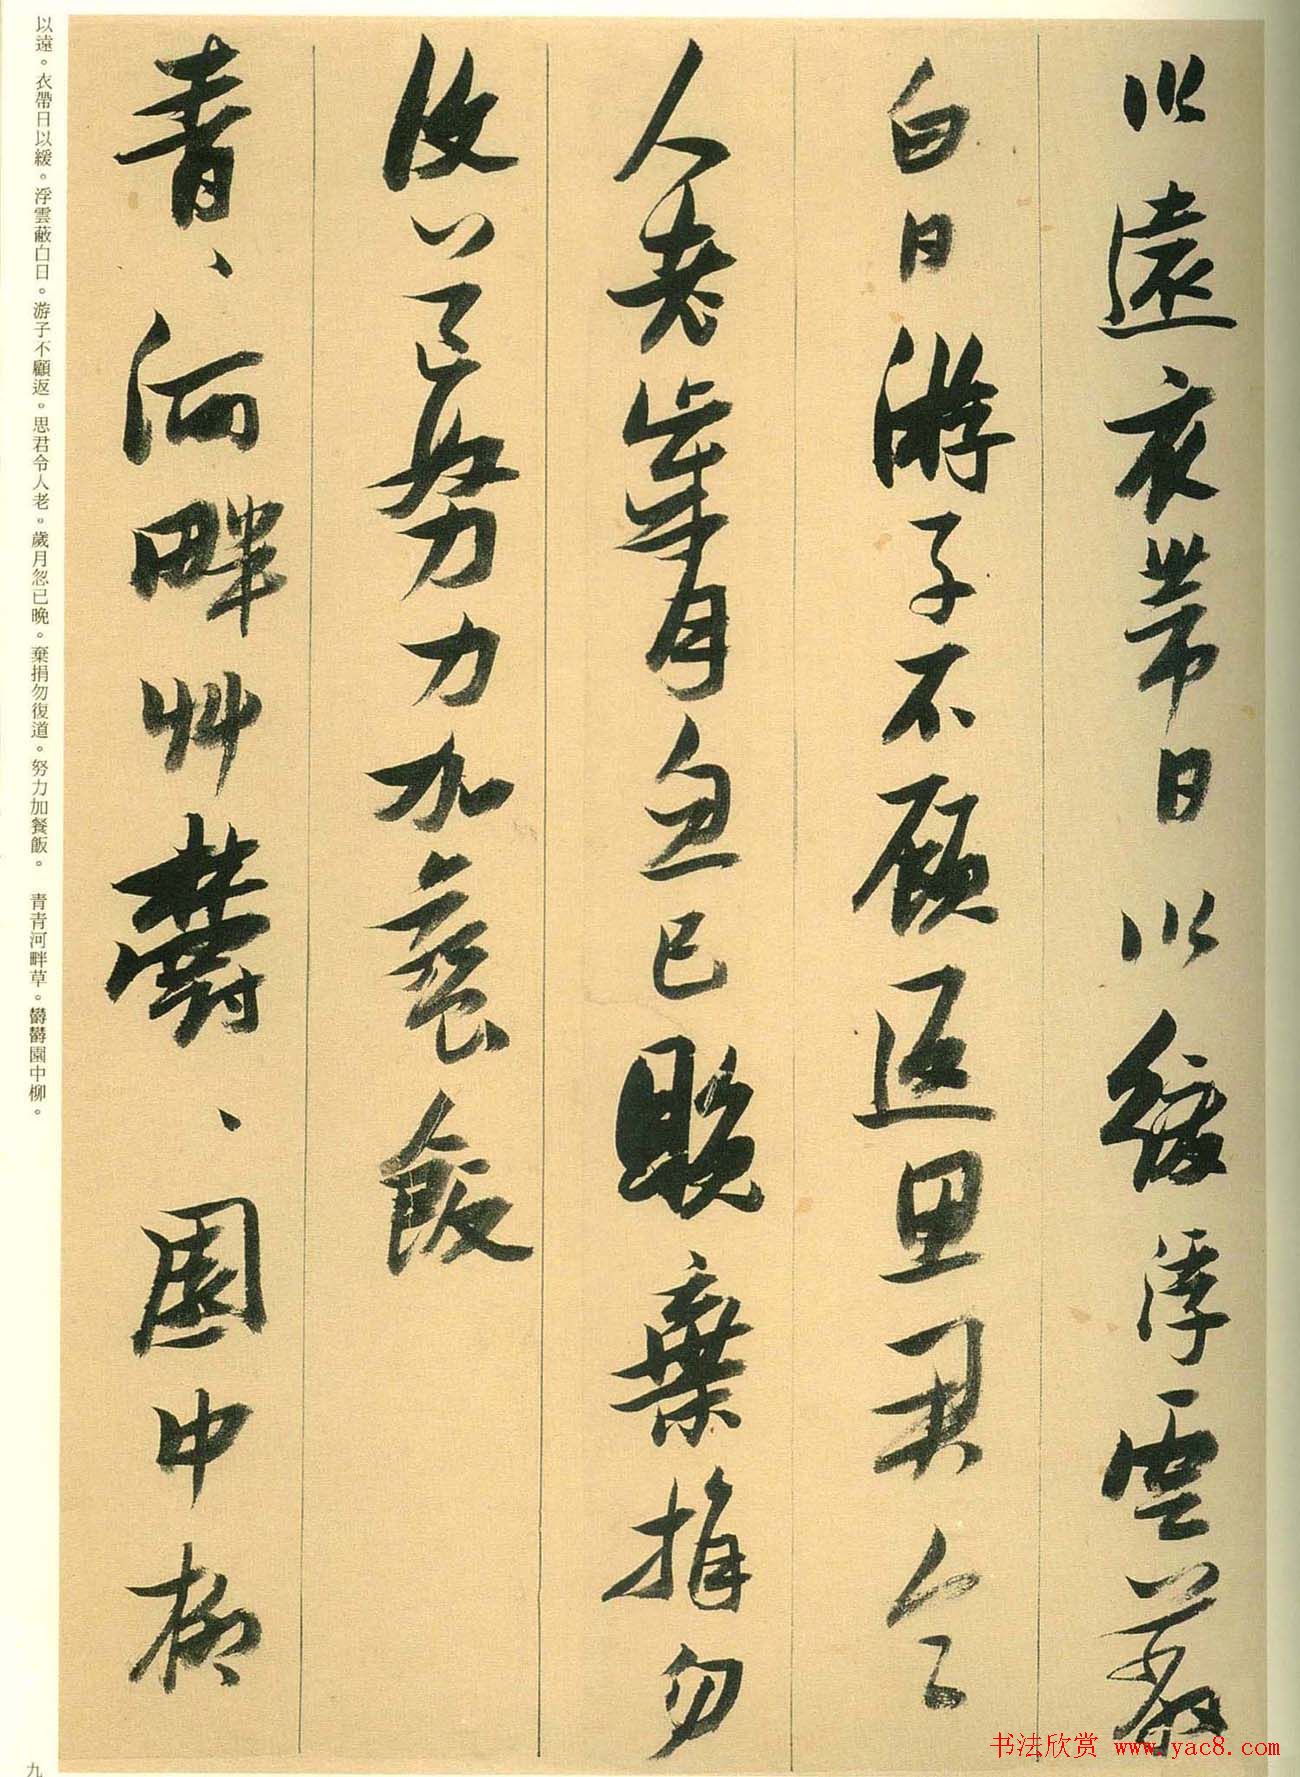 以遠衣帶日以緩浮雲蔽
白日游子不顧返思君令
人老歲月忽已晚棄捐勿
復道努力加餐飯
青、河畔艸欝、園中柳
以遠。衣帶日以緩。浮雲蔽白日。游子不顧返。思君令人老。歲月忽已晚。棄捐勿復道。努力加餐飯。 青青河畔草。欝欝園中柳。
九
书法欣赏 www.yac8.com